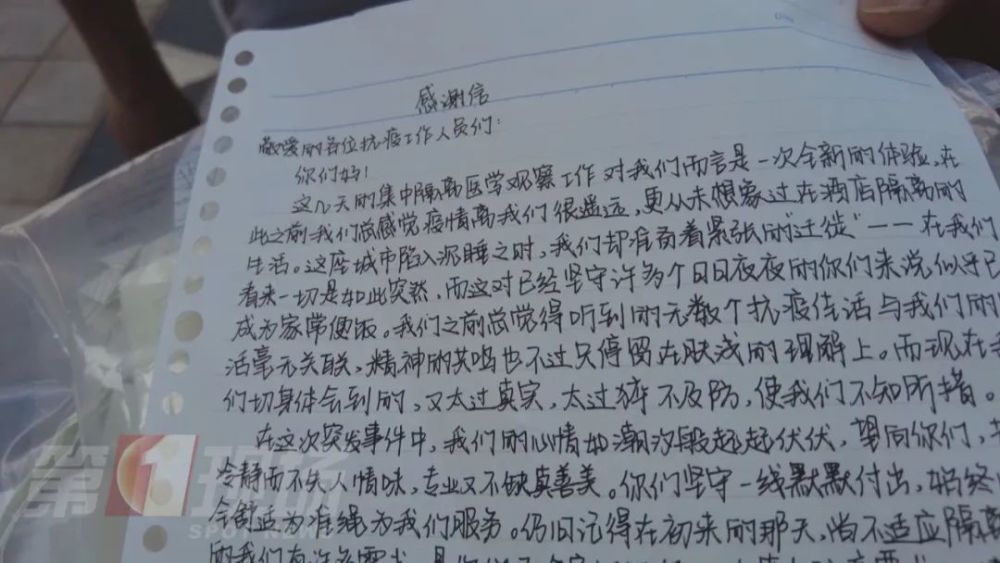 感谢信
敬爱的各位抗疫工作人员们:
你们好!
这几天的集中隔离医学观察工作对我们而言是一次全新的体验,在
此之前我们总感觉疫情离我们很遥远,更从未想象过在酒店隔离的
生活。这座城市陷入沉睡之时,我们却准备着紧张的“迁徙”——在我们
看来一切是如此突然,而这对已经坚守许多个日日夜夜的你们来说似乎已
成为家常便饭。我们之前总觉得听到的无数个抗疫佳话与我们的
活毫无关联,精神的共鸣也不过只停留在肤浅的理解上。而现在
们切身体会到的,又太过真实,太过猝不及防,使我们不知所措。
在这次突发事件中,我们的心情如潮汐般起起伏伏,望向你们,
冷静而不失人情味,专业又不缺真善美。你们坚守一线默默付出,始终
舒适为准绳为我们服务。仍旧记得在初来的那天,尚不适应隔离
的我们有许多需求
第1现场
SPOT NEWS